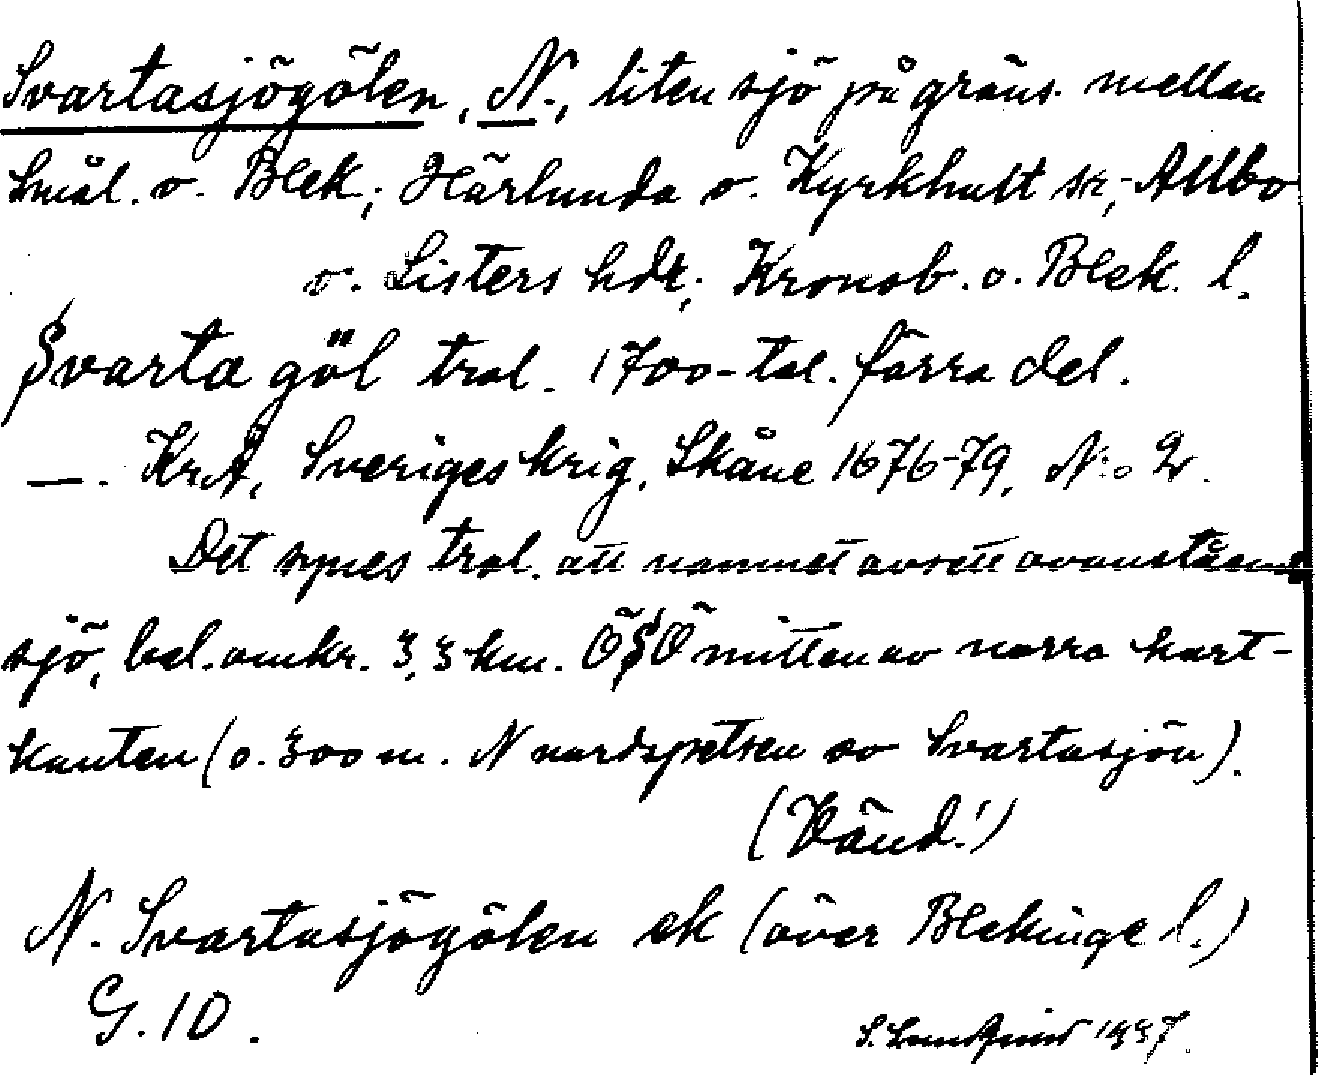 Svartasjögölen, N., liten sjö på gräns. mellan
Smål. o. Blek; Härlunda o. Kyrkhult sr; Allbo
o. Listers hdr; Kronob. o. Blek. l.
Svarta göl trol. 1700-tal. förra del.
—. KrA, Sveriges krig, Skåne 1676-79, N:o 2.
Det synes trol. att namnet avsett ovanstående
sjö, bel. omkr. 3,3 km. ÖSÖ mitten av norra kart-
kanten (o. 300 m. N nordspetsen av Svartasjön).
(Vänd!)
N. Svartasjögölen ek (över Blekinge l.)
G. 10.
S. Lundqvist 1937.